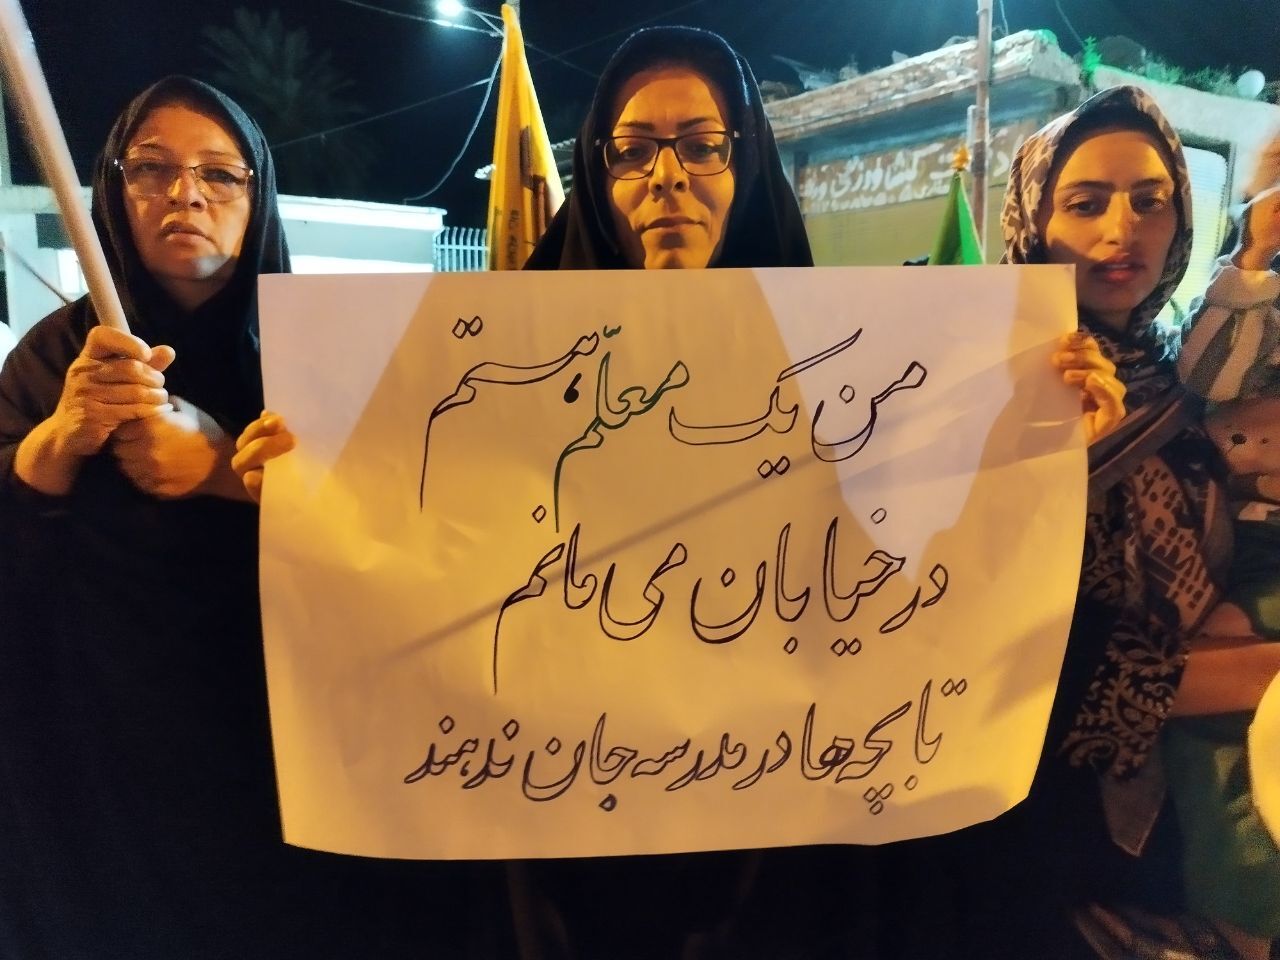 من یک معلّم هستم،
در خیابان می مانم
تا بچه ها در مدرسه جان ندهند
کشاورزی